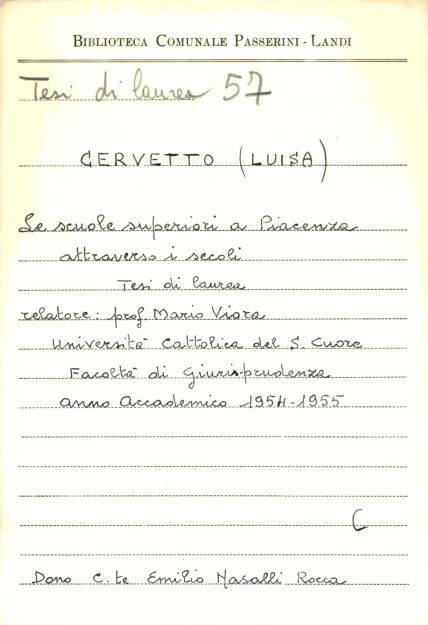 BIBLIOTECA COMUNALE PASSERINI - LANDI
Tesi di laurea 57
CERVETTO (LUISA)
Le scuole superiori a Piacenza
attraverso i secoli
Tesi di laurea
relatore: prof. Mario Viora
Università Cattolica del S. Cuore
Facoltà di Giurisprudenza
anno Accademico 1954-1955
C
Dono C.te Emilio Nasalli Rocca